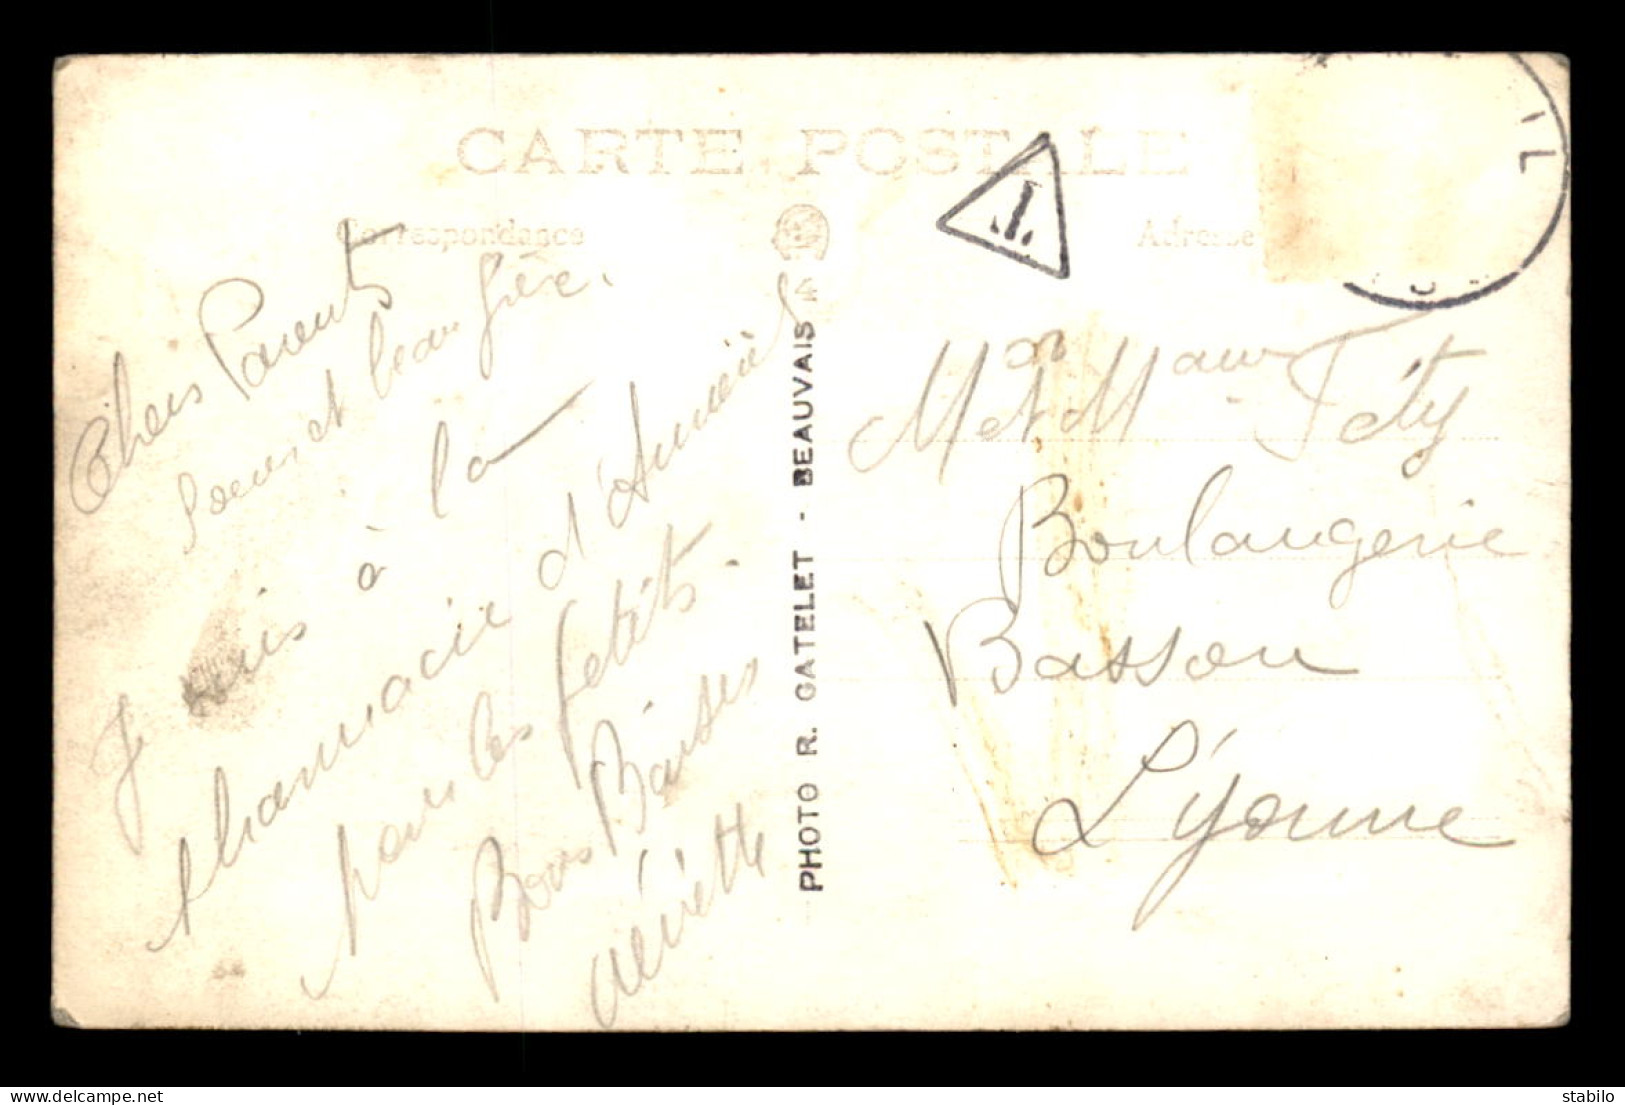 CARTE POSTALE
Correspondance
Adresse
T.
Chers Parents
Soeur et beau frère.
Je suis à la
pharmacie d'Aumeuil
pour les petits.
Bons Baisers
PHOTO R. GATELET - BEAUVAIS
Mr et Mme Féty
Boulangerie
Bassou
L'yonne
www.delcampe.net
stabilo